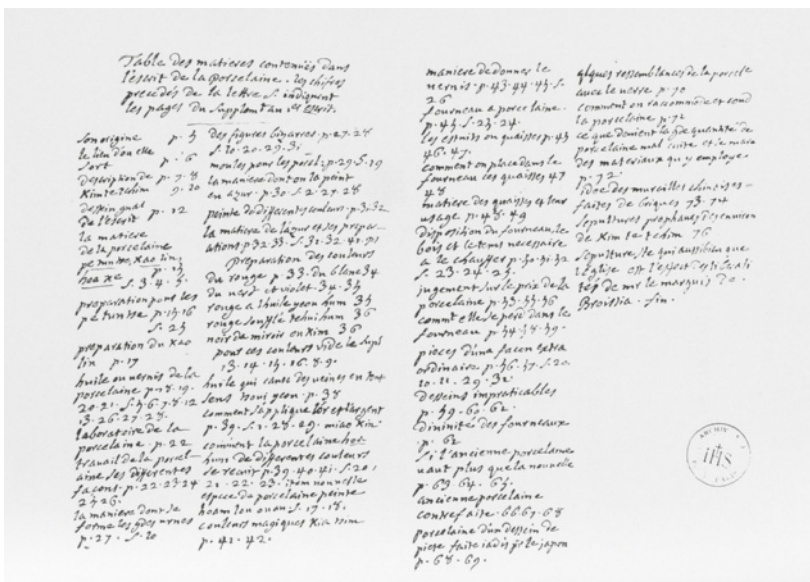 Table des matieres contenuës dans
l'escrit de la porcelaine. les chifres
precedés de la lettre S. indiquent
les pages du Supplémt au 1er escrit.
son origine p. 5
le lieu d'ou elle
sort p. 6
description de p. 7. 8
Kim te tchim 9. 10
dessein gñal
de l'escrit p. 12
la matiere
de la porcelaine
pe tun tse, kao lin,
hoa xe p. 13
S. 3. 4. 5.
preparation pour les
pe tuntse p. 15. 16
S. 25
preparation du Kao
lin p. 17
huile ou vernis de la
porcelaine p. 18. 19.
20. 21. S. 5. 6. 7. 8. 12
13. 26. 27. 28.
laboratoire de la
porcelaine. p. 22
travail de la porcel-
aine ses differentes
façons. p. 22. 23. 24
25. 26.
la maniere dont se
forme les gdes urnes
p. 27. S. 20
des figures bizarres. p. 27. 28
S. 10. 20. 29. 31
moules pour les porcel: p. 29. S. 19
la maniere dont on la peint
en azur. p. 30. S. 2. 27. 28
peinte de differentes couleurs. p. 31. 32
la matiere de l'azur et ses prepar-
ations p. 32. 33. S. 31. 32
preparation des couleurs
du rouge p. 33. du blanc 34
du verd et violet. 34. 35
rouge a l'huile yeou hum 35
rouge soufflé tchui hum 36
noir de miroir ou Kim 36
pour ces couleurs vide le Supl
13. 14. 15. 16. 8. 9.
huile qui cause des veines en tout
sens tsoui yeou. p. 38
comment s'applique l'or et l'argent
p. 39. S. 1. 28. 29. miao Kin
comment la porcelaine hor-
hum de differentes couleurs
se recuit p. 39. 40. 41. S. 20.
21. 22. 23. item nouvelle
espece de porcelaine peinte
hoam lou ouan S. 17. 18.
couleurs magiques Kia tsim
p. 41. 42.
maniere de donner le
vernis. p. 43. 44. 45. S.
26
fourneau a porcelaine.
p. 45. S. 23. 24.
les estuits ou quaisses p. 45
46. 47.
comment on place dans le
fourneau ces quaisses 47
48
matiere des quaisses et leur
usage p. 48. 49
disposition du fourneau, le
bois et le tems necessaire
a le chauffer p. 50. 51. 52
S. 23. 24. 25.
jugement sur le prix de la
porcelaine p. 53. 55. 56
comment elle se perd dans le
fourneau p. 54. 58. 59.
pieces d'une façon extra
ordinaire. p. 56. 57. S. 20.
10. 21. 29. 32
desseins impraticables
p. 59. 60. 62.
divinité des fourneaux.
p. 62
si l'ancienne porcelaine
vaut plus que la nouvelle
p. 63. 64. 65.
ancienne porcelaine
contrefaite. 66. 67. 68
porcelaine d'un dessein de
piete faite iadis pr le japon
p. 68. 69.
qlques ressemblances de la porcele
avec le verre p. 70
comment on raccommode et soud
la porcelaine p. 71
ce que devient la gde quantité de
porcelaine mal cuite et le marc
des materiaux qu'y employe
p. 72
idée des murailles chinoises
faites de briques 73. 74
sepultures prophanes des environ
de Kim te tchim 76
sepulture, ste qui aussi bien que
l'église est l'effect des liberali
tés de mr le marquis de.
Broissia. fin.
ARCHIV
IHS